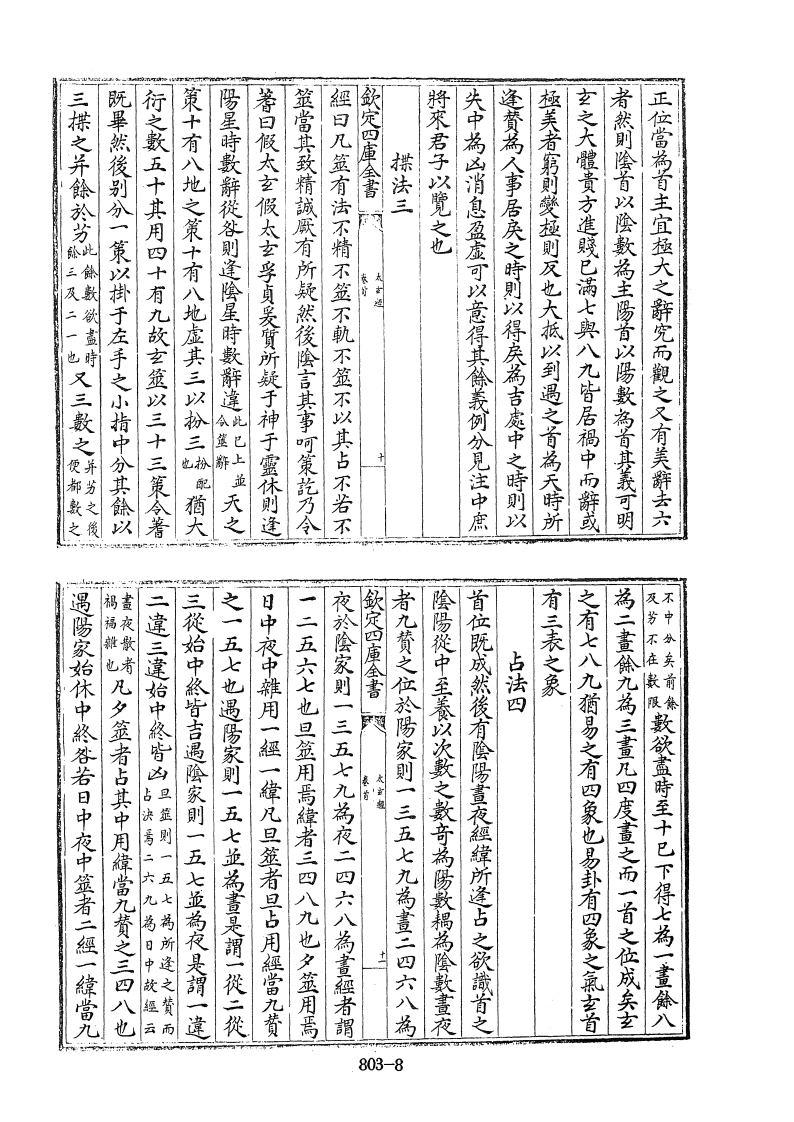 正位當為首主宜極大之辭究而觀之又有美辭去六
者然則陰首以陰數為主陽首以陽數為首其義可明
玄之大體貴方進賤已滿七與八九皆居禍中而辭或
極美者窮則變極則反也大抵以到遇之首為天時所
逢贊為人事居戾之時則以得戾為吉處中之時則以
失中為凶消息盈虛可以意得其餘義例分見注中庶
將來君子以覽之也
揲法三
欽定四庫全書
太玄經
卷首
十
經曰凡筮有法不精不筮不軌不筮不以其占不若不
筮當其致精誠厥有所疑然後陰言其事呵策訖乃令
蓍曰假太玄假太玄孚貞爰質所疑于神于靈休則逢
陽星時數辭從咎則逢陰星時數辭違此已上並
令筮辭天之
策十有八地之策十有八地虛其三以扮三扮配
也猶大
衍之數五十其用四十有九故玄筮以三十三策令蓍
既畢然後別分一策以掛于左手之小指中分其餘以
三揲之并餘於芀此餘數欲盡時
餘三及二一也又三數之并芀之後
便都數之
不中分矣前餘
及芀不在數限數欲盡時至十已下得七為一畫餘八
為二畫餘九為三畫凡四度畫之而一首之位成矣玄
之有七八九猶易之有四象也易卦有四象之氣玄首
有三表之象
占法四
首位既成然後有陰陽晝夜經緯所逢占之欲識首之
陰陽從中至養以次數之數奇為陽數耦為陰數晝夜
者九贊之位於陽家則一三五七九為晝二四六八為
欽定四庫全書
太玄經
卷首
十一
夜於陰家則一三五七九為夜二四六八為晝經者謂
一二五六七也旦筮用焉緯者三四八九也夕筮用焉
日中夜中雜用一經一緯凡旦筮者旦占用經當九贊
之一五七也遇陽家則一五七並為晝是謂一從二從
三從始中終皆吉遇陰家則一五七並為夜是謂一違
二違三違始中終皆凶旦筮則一五七為所逢之贊而
占決焉二六九為日中故經云
晝夜散者
禍福雜也凡夕筮者占其中用緯當九贊之三四八也
遇陽家始休中終咎若日中夜中筮者二經一緯當九
803-8